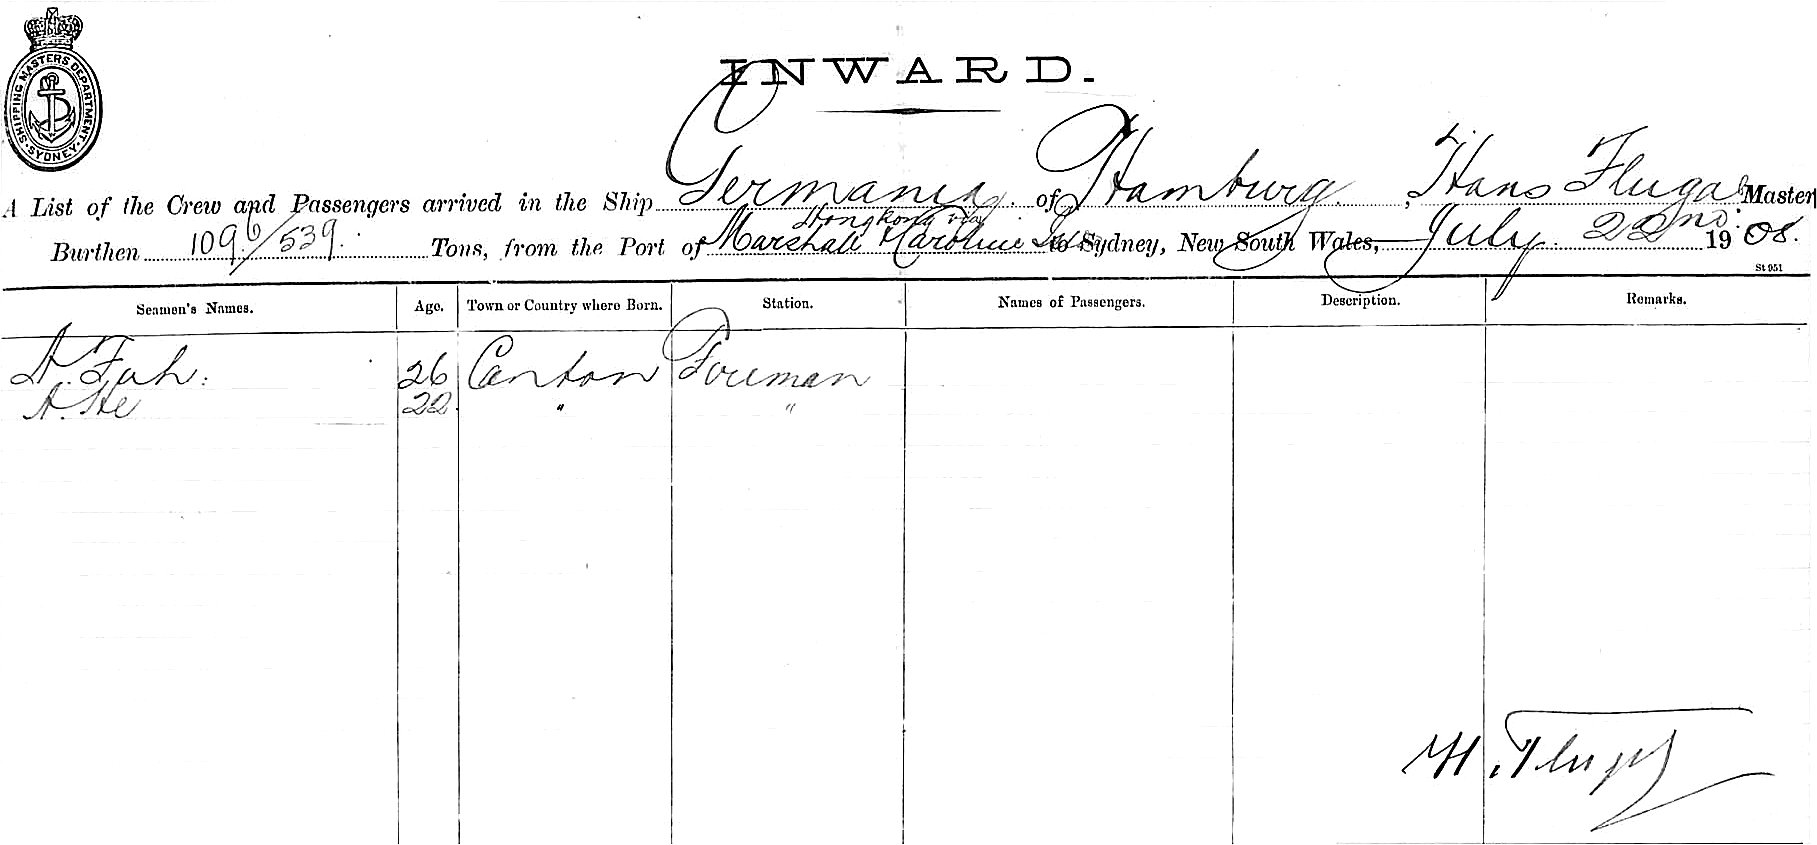 SHIPPING MASTERS DEPARTMENT
SYDNEY
INWARD.
A List of the Crew and Passengers arrived in the Ship Germania of Hamburg, Hans Flugal Master
Hongkong via
Burthen 1096/539 Tons, from the Port of Marshall Karoline Isds to Sydney, New South Wales, July 22nd 1908.
St 951
Seamen's Names. Age. Town or Country where Born. Station. Names of Passengers. Description. Remarks.
A. Fah. 26 Canton Foreman
A. He 22 " "
H.